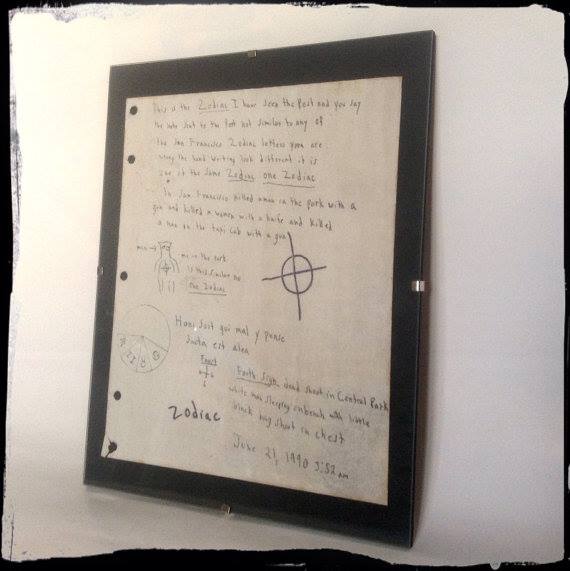 This is the Zodiac I have seen the Post and you say
the note sent to the Post not similar to any of
the San Francisco Zodiac letters you are
wrong the hand writing look different it is
one of the same Zodiac one Zodiac
In San Francisco killed a man in the park with a
gun and killed a women with a knife and killed
a man on the taxi cab with a gun
me in the park
is this similar no
one Zodiac
Honi soit qui mal y pense
Jacta est alea
Faust
6
6
Zodiac
Fourth Sign dead shoot in Central Park
white man sleeping on bench with little
black bag shoot in chest
June 21, 1990 3:52 am